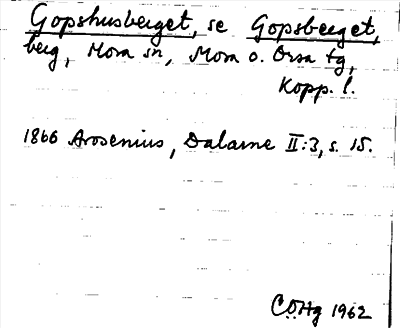 Gopshusberget, se Gopsberget,
berg, Mora sn, Mora o. Orsa tg,
Kopp. l.
1866 Arosenius, Dalarne II:3, s. 15.
CÖHg 1962